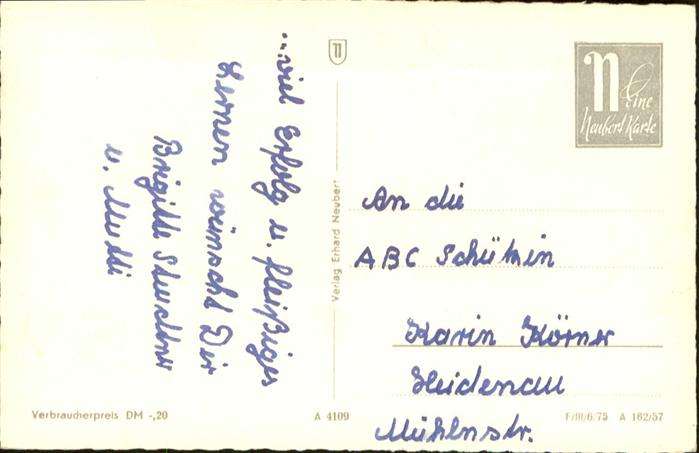 ...viel Erfolg u. fleißiges
Lernen wünscht Dir
Brigitte Stuchtner
u. Mutti
N
N
Eine
Neubert Karte
Verlag Erhard Neubert
An die
ABC Schützin
Karin Körner
Heidenau
Mühlnstr.
Verbraucherpreis DM -,20
A 4109
A 162/57